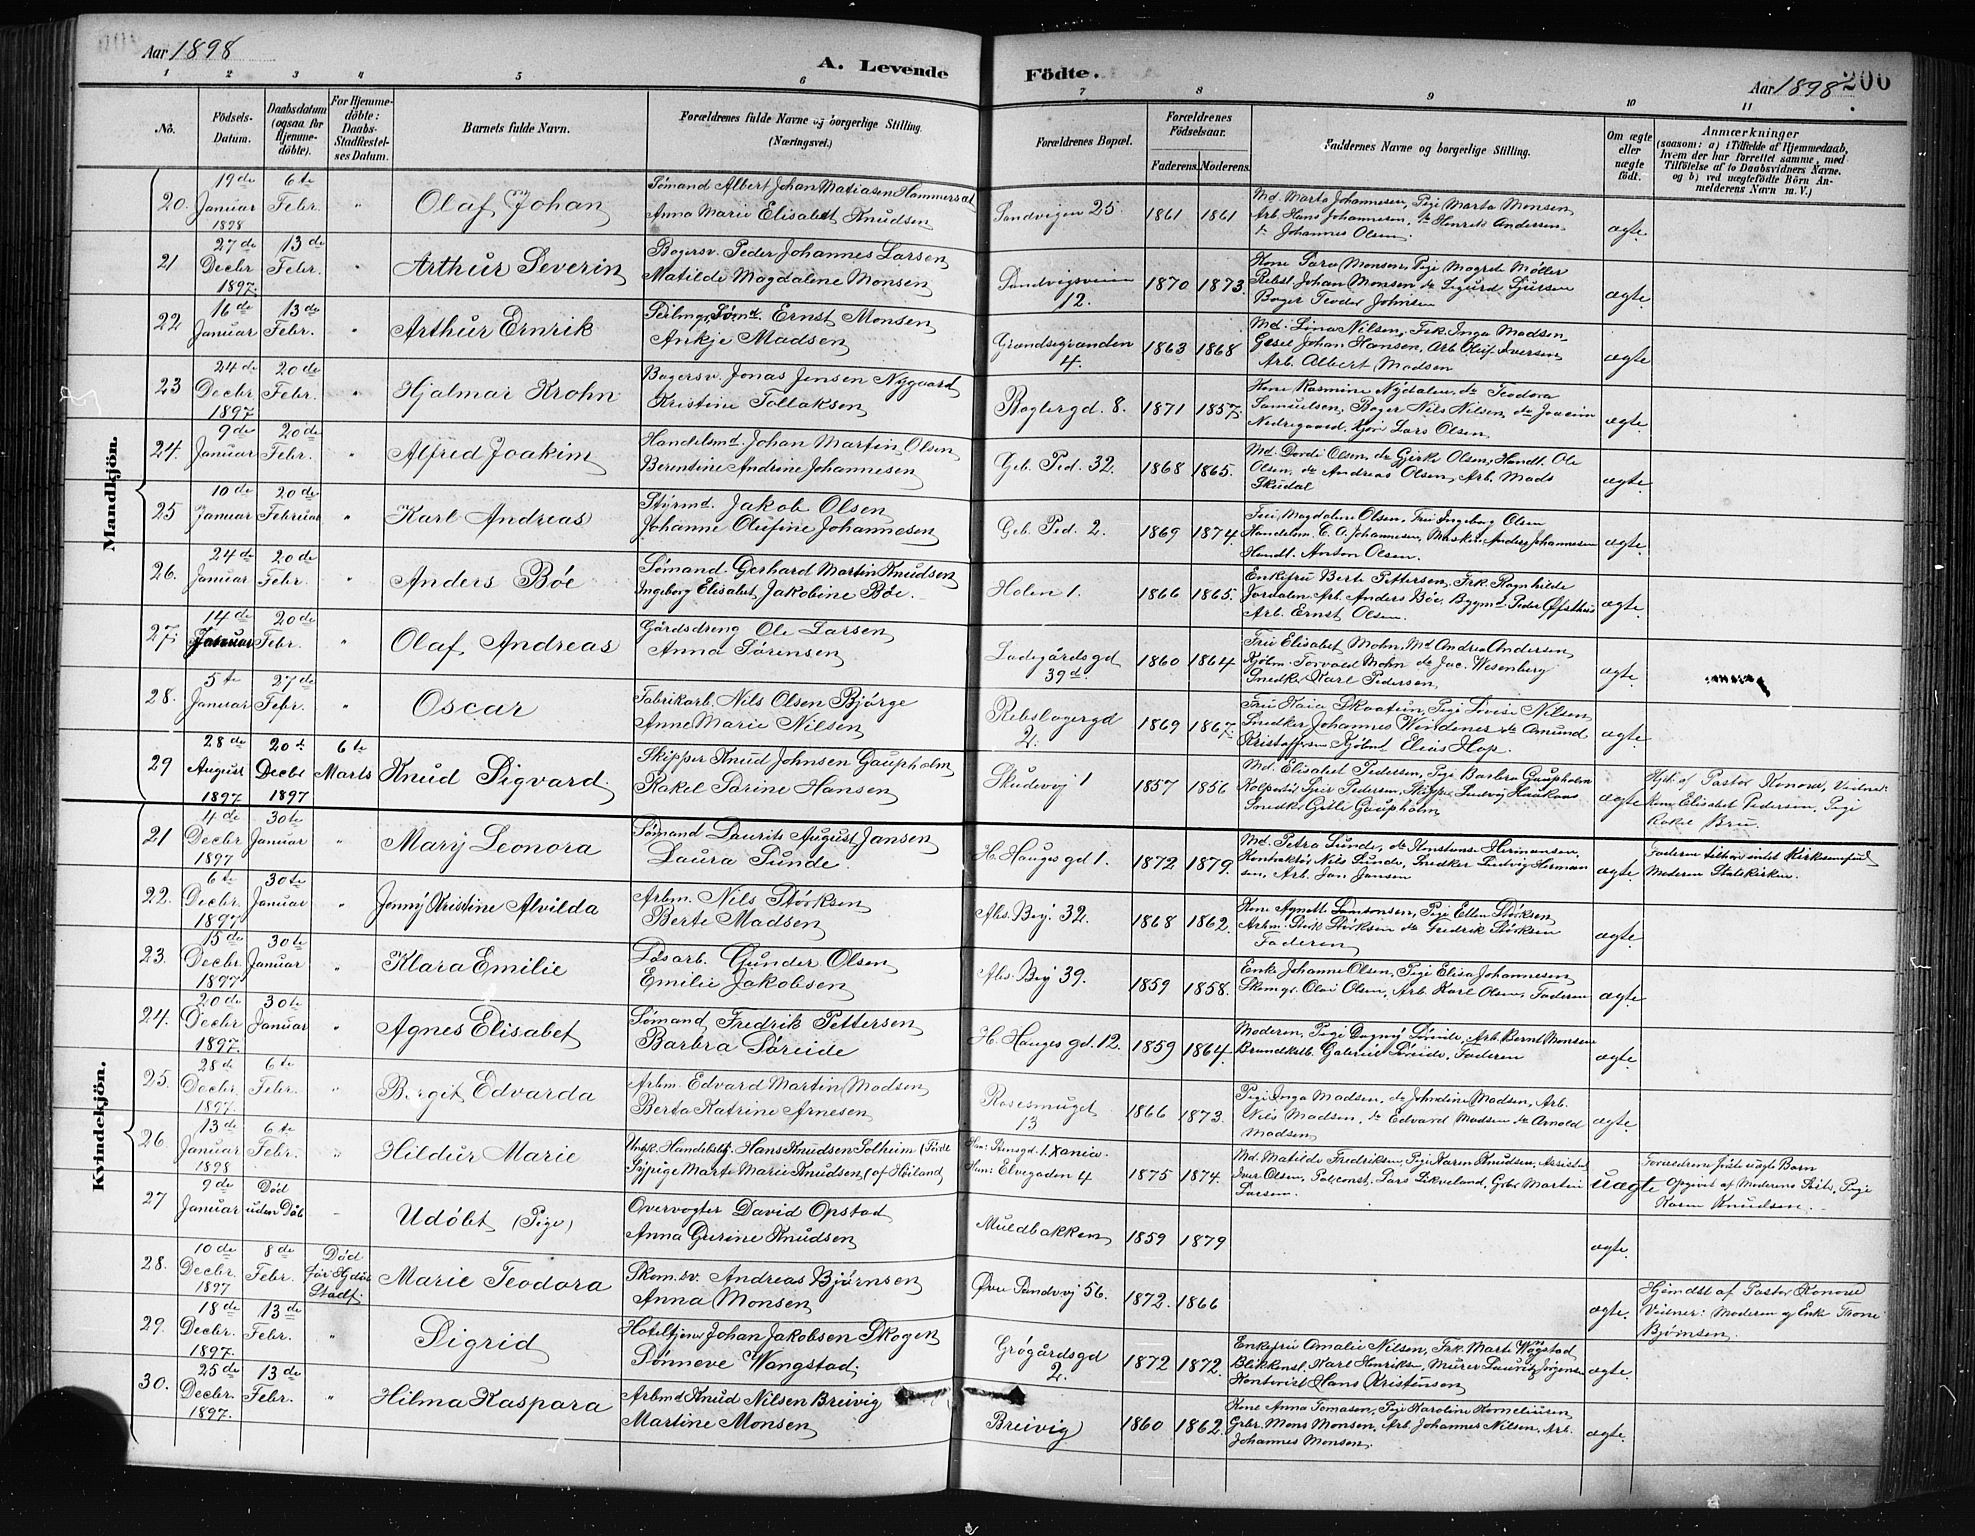 Aar 1898
A. Levende Födte.
Aar 1898
206
1 2 3 4 5 6 7 8 9 10 11
No.
Födsels-Datum.
Daabsdatum (ogsaa for Hjemme-döbte).
For Hjemme-döbte: Daabs-Stadfæstel-ses Datum.
Barnets fulde Navn.
Forældrenes fulde Navne og borgerlige Stilling. (Næringsvei.)
Forældrenes Bopæl.
Forældrenes Födselsaar.
Faderens. Moderens.
Faddernes Navne og borgerlige Stilling.
Om ægte eller uægte födt.
Anmærkninger
(saasom: a) i Tilfælde af Hjemmedaab, hvem der har forrettet samme, med Tilföielse af to Daabsvidners Navne, og b) ved uægtefödte Börn An-melderens Navn m. V.)
Mandkjön.
20. 19de Januar 1898 6te Febr. " Olaf Johan
Sømand Albert Johan Matiasen Hammersat
Anna Marie Elisabet Knudsen
Sandvigen 25. 1861 1861
Md. Marta Johannesen, Pige Marta Monsen
Arb. Hans Johannesen, do Henrik Andersen
do Johannes Olsen.
ægte.
21 27de Decbr 1897. 13de Febr. " Arthur Severin
Bagersv. Peder Johannes Larsen
Matilde Magdalene Monsen
Sandvigsveien 12. 1870 1873.
Kone Sara Monsen, Pige Magrete Møller
Rebsl Johan Monsen do Sigurd Sjursen
Bager Teodor Johnsen
ægte.
22 16de Januar 13de Febr. " Arthur Ernrik
Ernst Monsen
Ankje Madsen
Grandsegranden 4. 1863 1868
Md. Lina Nilsen, Frk. Inga Madsen
Gesel Johan Hansen, Arb. Oluf Iversen
Arb. Albert Madsen
ægte.
23 24de Decbr. 1897 20de Febr. " Hjalmar Krohn
Bagersv. Jonas Jensen Nygaard
Kristine Tollaksen
Baglergd. 8. 1871 1857.
Kone Rasmine Nydalen, do Teodora
Samuelsen, Bager Nils Nilsen, do Joacim
Nedregaard, Lars Olsen.
ægte.
24. 9de Januar 20de Febr. " Alfred Joakim
Handelsmd. Johan Martin Olsen
Berentine Andrine Johannesen
Geb. Ped. 32. 1868 1865.
Md. Dordi Olsen, do Gjerke Olsen, Handl. Ole
Olsen, do Andreas Olsen, Arb. Mads
Skudal
ægte.
25 10de Januar 20de Februar " Karl Andreas
Styrmd. Jakob Olsen
Johanne Olufine Johannesen
Geb Ped. 2. 1869 1874.
Fru Magdalene Olsen, Fru Ingeborg Olsen
Handelsm. C. A. Johannesen, Maskin. Anders Johannesen
Handl. Anton Olsen.
ægte.
26. 24de Januar 20de Febr. " Anders Bøe
Sømand. Gerhard Martin Knudsen
Ingeborg Elisabet Jakobine Bøe.
Holen 1. 1866 1865.
Enkefru Berte Pettersen, Frk. Ragnhilde
Jordalen Arb. Anders Bøe, Bygm. Peder
Arb. Ernst Olsen.
ægte.
27. 14de Januar 20de Febr. " Olaf Andreas
Gårdsdreng Ole Larsen
Anna Sørensen
Ladegårdsgd 39d. 1860 1864
Fru Elisabet Mohn, Md Andrea Andersen
Kjøbm. Torvald Mohn do Jac. Wesenberg
Snedker Karl Pedersen
ægte.
28. 5te Januar 27de Febr. " Oscar
Fabrikarb. Nils Olsen Bjørge
Anne Marie Nilsen
Rebslagergd 2. 1869 1867.
Fru Kaia Skaatun, Pige Lovise Nilsen
Snedker Johannes Windenes do Amund
Kristoffersen Kjøbmd Elias Hop.
ægte.
29 28de August 1897 20de Decbr 1897 6te Marts Knud Sigvard.
Skipper Knud Johnsen Gaupholm
Rakel Sarine Hansen
Skudevig 1 1857 1856
Md. Elisabet Pedersen, Pige Barbra Gaupholm
Kolportør Peder Pedersen, Skipper Ludvig Haukaas
Snedker Gitle Gaupholm
ægte
Hjd. af Pastor Konow, Vidner:
Kone Elisabet Pedersen, Pige
Rakel Bru.
Kvindekjön.
21 4de Decbr 1897 30te Januar " Mary Leonora
Sømand Laurits August Jansen
Laura Sunde.
H. Hauges gd 1. 1872 1879.
Md. Petra Sunde, do Konstanse Hermansen,
Kontraktør Nils Sunde, Snedker Ludvig Herman
sen, Arb. Jan Jansen
ægte.
Faderen tilhør intet Kirkesamfund
Moderen Statskirken.
22. 6te Decbr. 1897 30te Januar " Jenny Kristine Alvilda
Arbm. Nils Størksen
Berte Madsen
Abs. Beÿ. 32. 1868 1862.
Kone Agnete Samsonsen, Pige Ellen Størksen
Arbm. Størk Størksen do Fredrik Størksen
Faderen
ægte.
23. 15de Decbr. 1897 30te Januar " Klara Emilie
Løsarb. Gunder Olsen
Emilie Jakobsen
Abs. Beÿ 39. 1859 1858.
Enke Johanne Olsen, Pige Elisa Johannesen
Skomgr. Olai Olsen, Arb. Karl Olsen, Faderen
ægte
24. 20de Decbr 1897. 30te Januar " Agnes Elisabet
Sømand Fredrik Pettersen
Barbra Søreide
H. Hauges gd. 12. 1859 1864.
Moderen, Pige Dagny Søreide, Arb. Bernt Monsen
Brandkstb. Gabriel Søreide, Faderen
ægte
25. 28de Decbr. 1897. 6te Febr. " Birgit Edvarda
Arbm. Edvard Martin Madsen
Berta Katrine Arnesen
Rosesmuget 13 1866 1873.
Pige Inga Madsen, do Johndine Madsen, Arb.
Nils Madsen, do Edvard Madsen do Arnold
Madsen
ægte.
26. 13de Januar 1898 6te Febr. " Hildur Marie
Ungk. Handelsbtj. Hans Knudsen Solheim (Født
Sypige Marte Marie Knudsen, (af Høiland
Han: Stensgd. 1. Xania.
Hun: Elvegaden 4 1875 1874.
Md. Matilde Fredriksen, Pige Karen Knudsen, Assistent
Iver Olsen, Polconst. Lars Likveland, Grbr Martin
Larsen.
uægte
Forældrene første uægte Barn
Opgivet af Moderens Søster, Pige
Karen Knudsen.
27 9de Januar Død uden Dåb - Udøbt (Pige)
Overvogter David Opstad
Anna Gurine Knudsen
Muldbakken 1859 1879
ægte.
28. 10de Decbr. 1897 8de Febr. Død før Hjdåb Stadf. Marie Teodora
Skom. sv. Andreas Bjørnsen
Anna Monsen
Øvre Sandvj 56. 1872. 1866
ægte.
Hjemdøbt af Pastor Konow
Vidner: Moderen og Enke Trone
Bjørnsen.
29. 18de Decbr. 1897. 13de Febr. " Sigrid
Hoteltjener Johan Jakobsen Skogen
Sønneve Wangstad.
Grøgårdsgd 2. 1872 1872.
Enkefru Amalie Nilsen, Frk. Marte Wangstad
Blikkensl. Karl Henriksen, Murer Lauritz Jørgensen
Kontorist Hans Kristensen
ægte.
30. 25de Decbr. 1897. 13de Febr. " Hilma Kaspara
Arbmd Knud Nilsen Breivig
Martine Monsen
Breivig 1860 1862.
Kone Anna Tomasen, Pige Karoline Korneliusen
Grbr. Mons Monsen, Arb. Johannes Nilsen, Arb.
Johannes Monsen.
ægte.